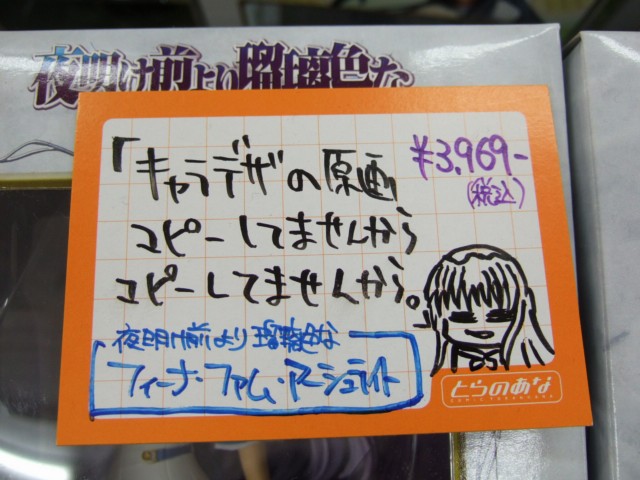 夜明け前より瑠璃色な
「キャラデザの原画
コピーしてませんから
コピーしてませんから。
¥3,969-
(税込)
夜明け前より瑠璃色な
フィーナ・ファム・アーシュライト
とらのあな
COMIC TORANOANA